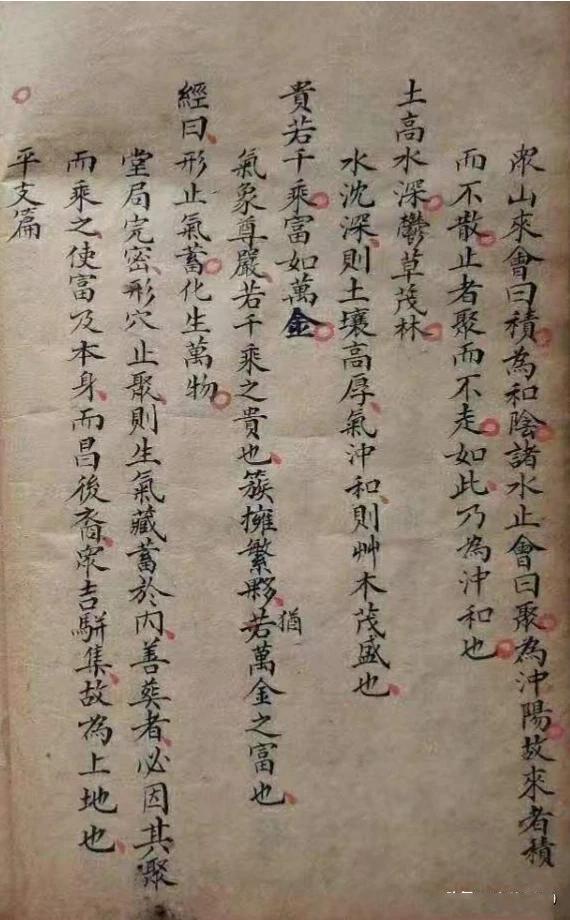 眾山來會曰積為和陰諸水止會曰聚為沖陽故來者積
而不散止者聚而不走如此乃為沖和也
土高水深鬱草茂林
水沈深則土壤高厚氣沖和則艸木茂盛也
貴若千乘富如萬金
氣象尊嚴若千乘之貴也簇擁繁夥若猶萬金之富也
經曰形止氣蓄化生萬物
堂局完密形穴止聚則生氣藏蓄於內善葬者必因其聚
而乘之使富及本身而昌後裔眾吉駢集故為上地也
平支篇